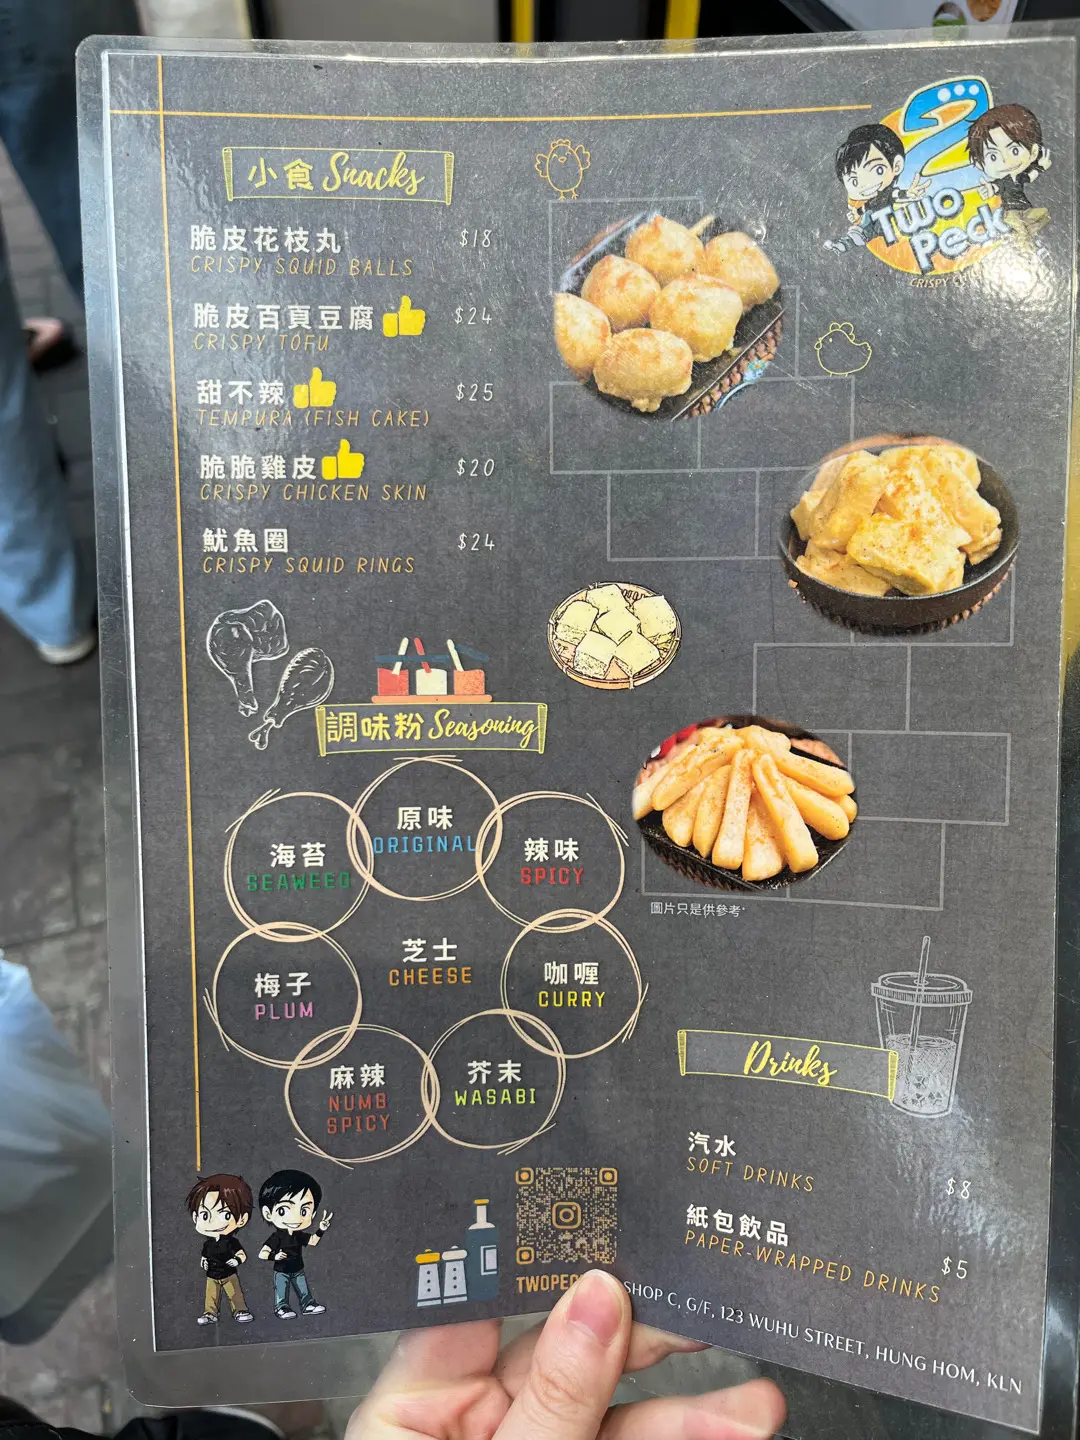 小食 Snacks
2
Two
Peck
CRISPY
脆皮花枝丸 $18
CRISPY SQUID BALLS
脆皮百頁豆腐 $24
CRISPY TOFU
甜不辣 $25
TEMPURA (FISH CAKE)
脆脆雞皮 $20
CRISPY CHICKEN SKIN
魷魚圈 $24
CRISPY SQUID RINGS
調味粉 Seasoning
原味
ORIGINAL
海苔
SEAWEED
辣味
SPICY
芝士
CHEESE
梅子
PLUM
咖喱
CURRY
麻辣
NUMB
SPICY
芥末
WASABI
圖片只是供參考*
Drinks
汽水
SOFT DRINKS $8
紙包飲品
PAPER-WRAPPED DRINKS $5
SHOP C, G/F, 123 WUHU STREET, HUNG HOM, KLN